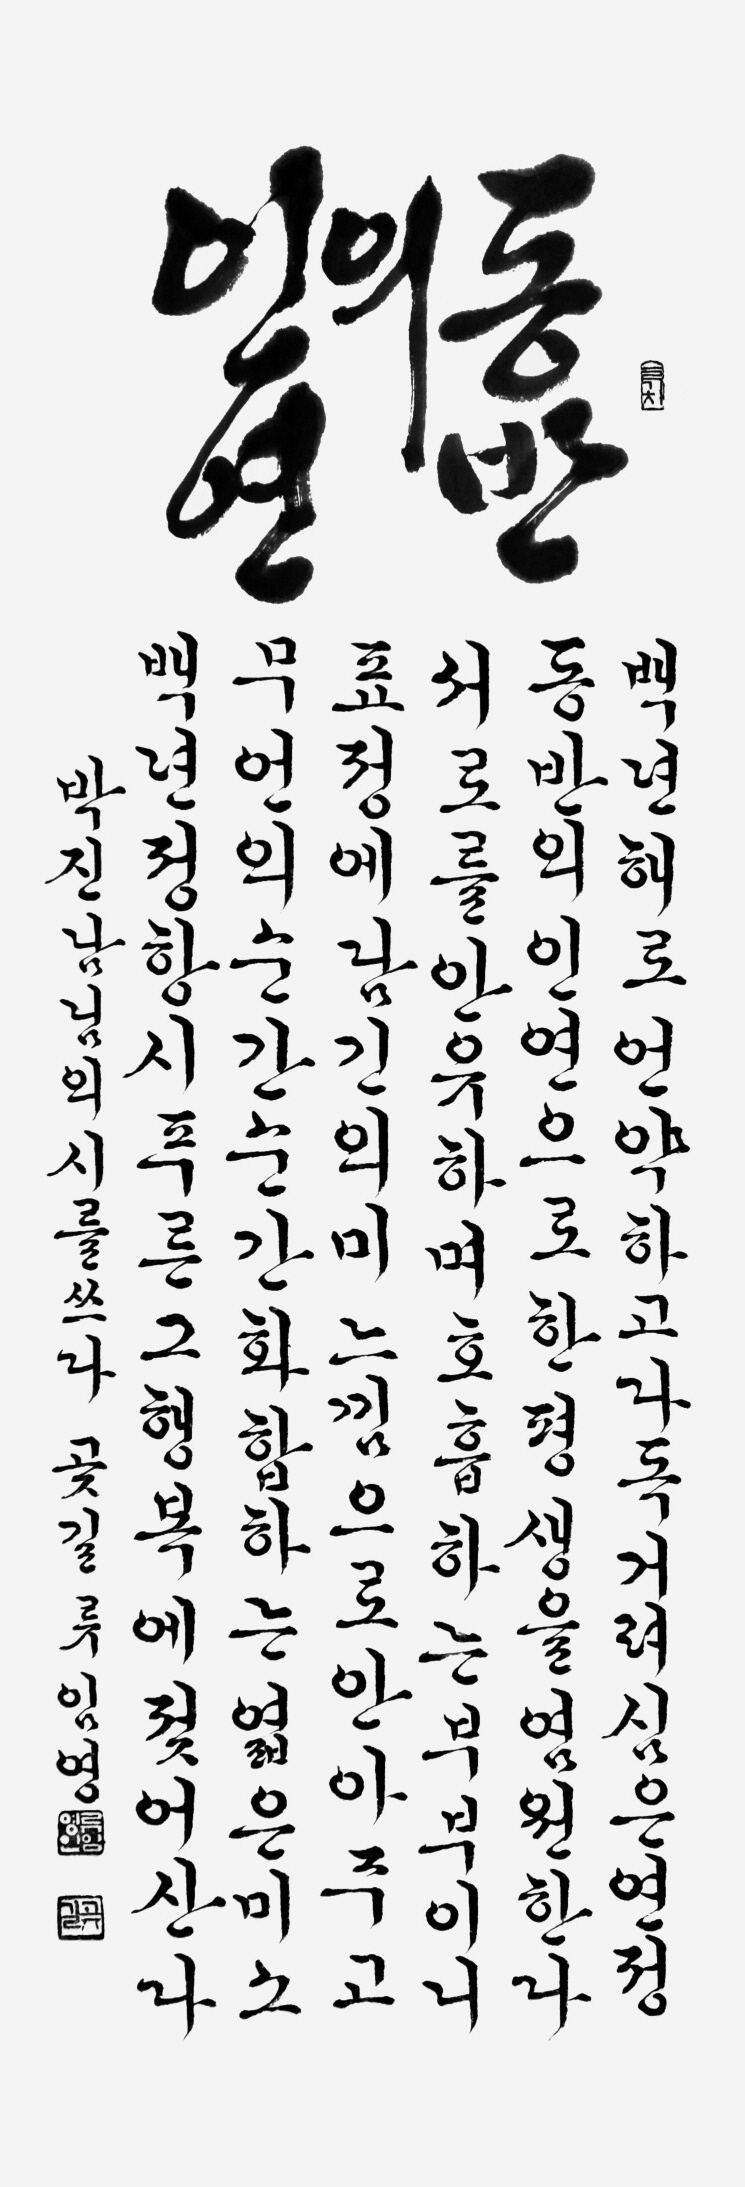 동반
의
인연
백년해로언약하고다독거려심은연정
동반의인연으로한평생을염원한다
서로를안유하며호흡하는부부이니
표정에담긴의미느낌으로안아주고
무언의순간순간화합하는엷은미소
백년정항시푸른그행복에젖어산다
박진남님의시를쓰다 곶길 류임영